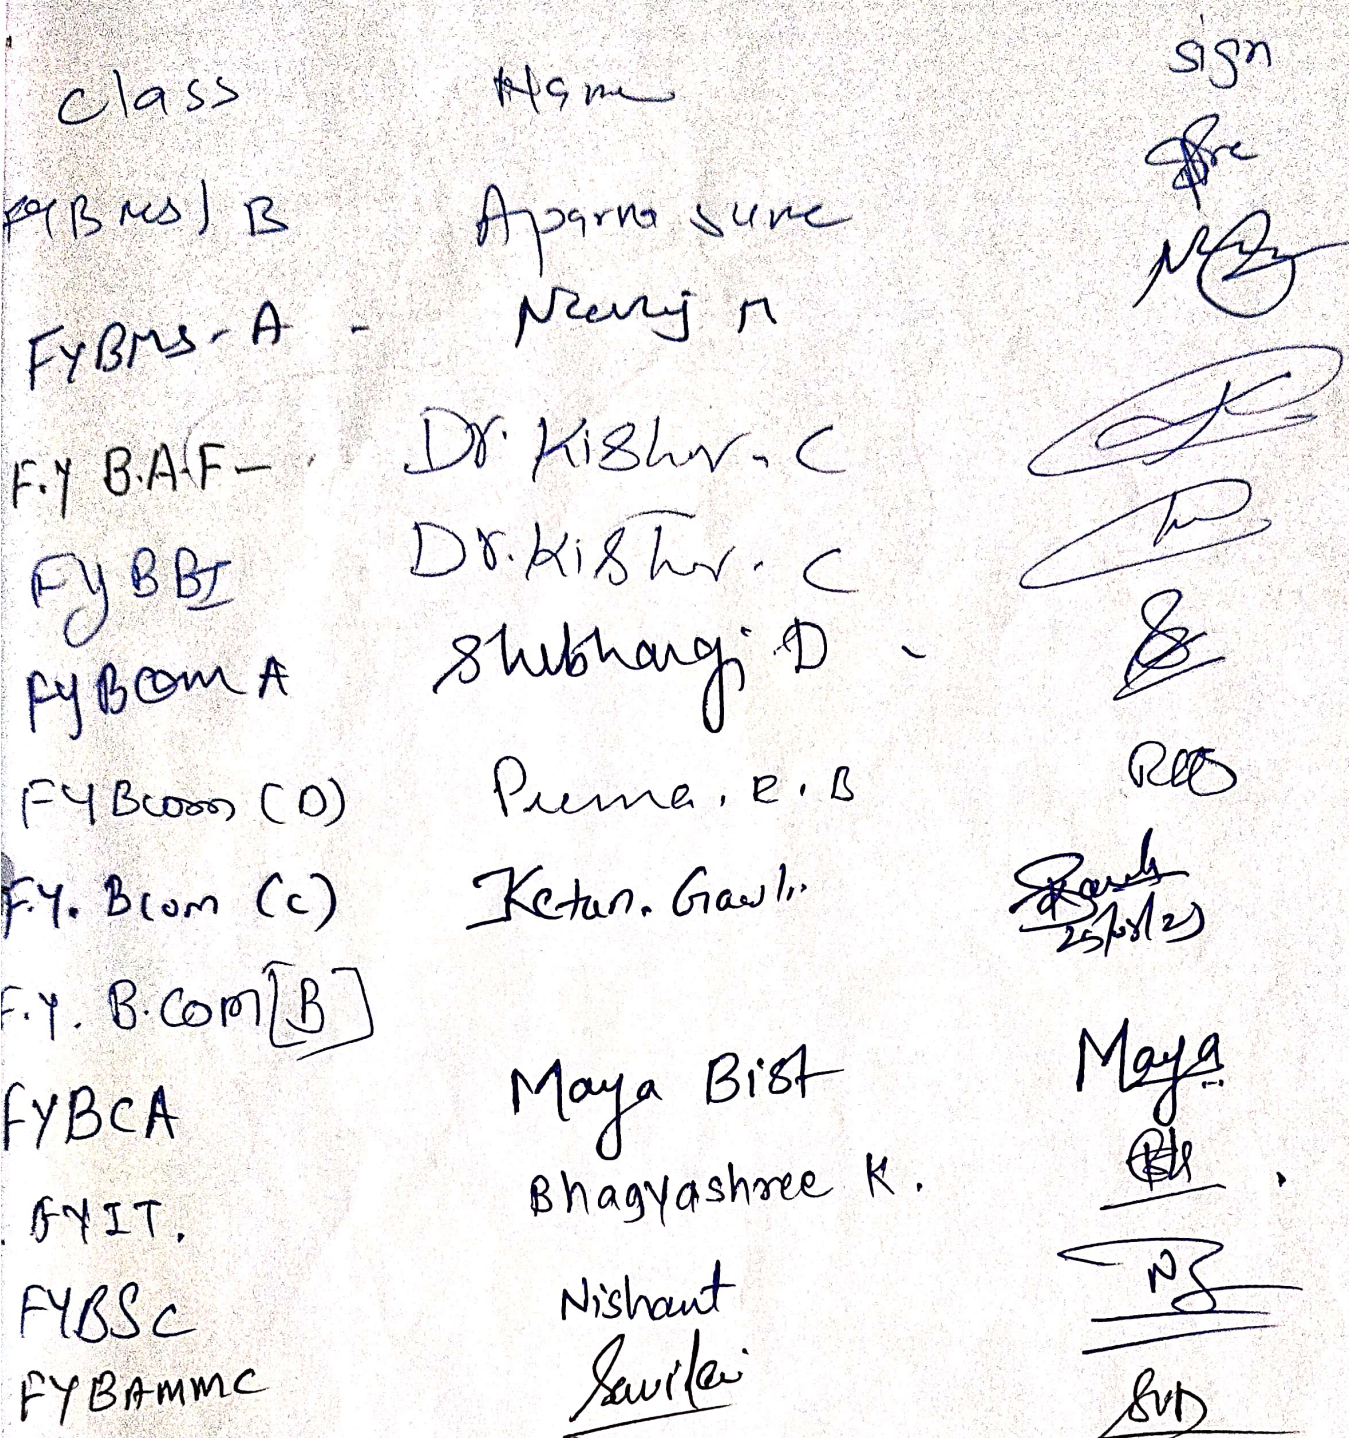 class Name sign
FYBMS / B Aparna Surve
FYBMS - A - Neeraj M
F.Y B.A.F - Dr. Kishor. C
FY BBI Dr. Kishor. C
FYBCOM A Shubhangi D -
FYBcom (D) Prerna. R. B
F.Y. Bcom (C) Ketan. Gawli.
25/08/23
F.Y. B.COM [B]
FYBCA Maya Bist Maya
FYIT. Bhagyashree K.
FYBSC Nishant
FYBAMMC